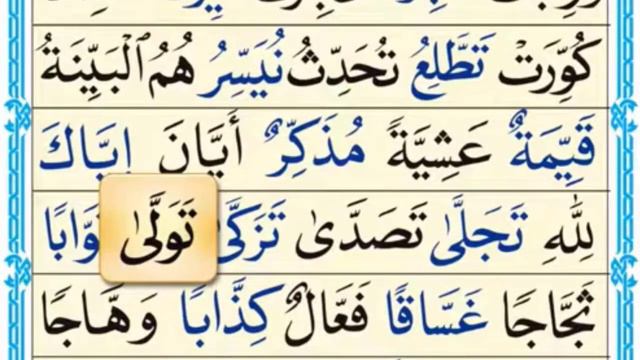 كُوِّرَتْ تَطَّلِعُ تُحَدِّثُ نُيَسِّرُ هُمُ الْبَيِّنَةُ
قَيِّمَةٌ عَشِيَّةً مُذَكِّرٌ أَيَّانَ إِيَّاكَ
لِلّٰهِ تَجَلّٰى تَصَدّٰى تَزَكّٰى تَوَلّٰى وَّابًا
ثَجَّاجًا غَسَّاقًا فَعَّالٌ كِذَّابًا وَهَّاجًا